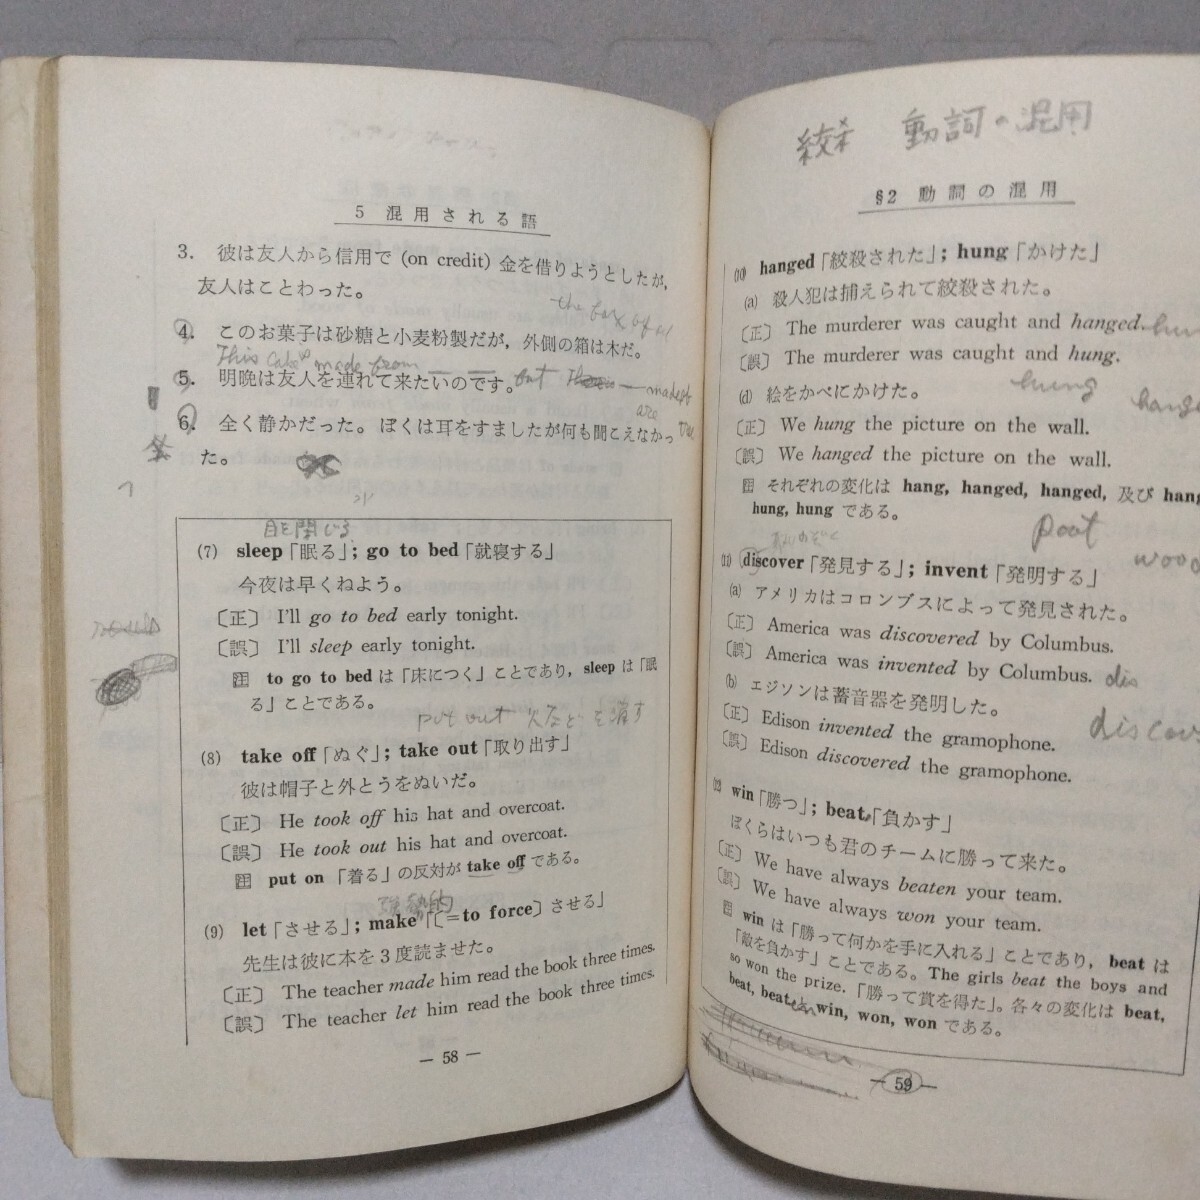 5 混用される語
3. 彼は友人から信用で (on credit) 金を借りようとしたが,
友人はことわった。
the box of
4. このお菓子は砂糖と小麦粉製だが, 外側の箱は木だ。
This cake made from
5. 明晩は友人を連れて来たいのです。
but made of
are
6. 全く静かだった。ぼくは耳をすましたが何も聞こえなかっ
た。
目を閉じる
(7) sleep「眠る」; go to bed「就寝する」
今夜は早くねよう。
〔正〕 I'll go to bed early tonight.
〔誤〕 I'll sleep early tonight.
注 to go to bed は「床につく」ことであり, sleep は「眠
る」ことである。
put out 火などを消す
(8) take off「ぬぐ」; take out「取り出す」
彼は帽子と外とうをぬいだ。
〔正〕 He took off his hat and overcoat.
〔誤〕 He took out his hat and overcoat.
注 put on 「着る」の反対が take off である。
強勢的
(9) let「させる」; make「〔=to force〕させる」
先生は彼に本を3度読ませた。
〔正〕 The teacher made him read the book three times.
〔誤〕 The teacher let him read the book three times.
— 58 —
絞杀 動詞の混用
§2 動詞の混用
(10) hanged「絞殺された」; hung「かけた」
(a) 殺人犯は捕えられて絞殺された。
〔正〕 The murderer was caught and hanged.
〔誤〕 The murderer was caught and hung.
hung
(d) 絵をかべにかけた。
〔正〕 We hung the picture on the wall.
〔誤〕 We hanged the picture on the wall.
注 それぞれの変化は hang, hanged, hanged, 及び hang
hung, hung である。
poot
(11) discover「発見する」; invent「発明する」
(a) アメリカはコロンブスによって発見された。
〔正〕 America was discovered by Columbus.
〔誤〕 America was invented by Columbus.
dis
(b) エジソンは蓄音器を発明した。
〔正〕 Edison invented the gramophone.
discov
〔誤〕 Edison discovered the gramophone.
(12 win「勝つ」; beat「負かす」
ぼくらはいつも君のチームに勝って来た。
〔正〕 We have always beaten your team.
〔誤〕 We have always won your team.
注 win は「勝って何かを手に入れる」ことであり, beat は
「敵を負かす」ことである。The girls beat the boys and
so won the prize.「勝って賞を得た」。各々の変化は beat,
beat, beat en win, won, won である。
— 59 —